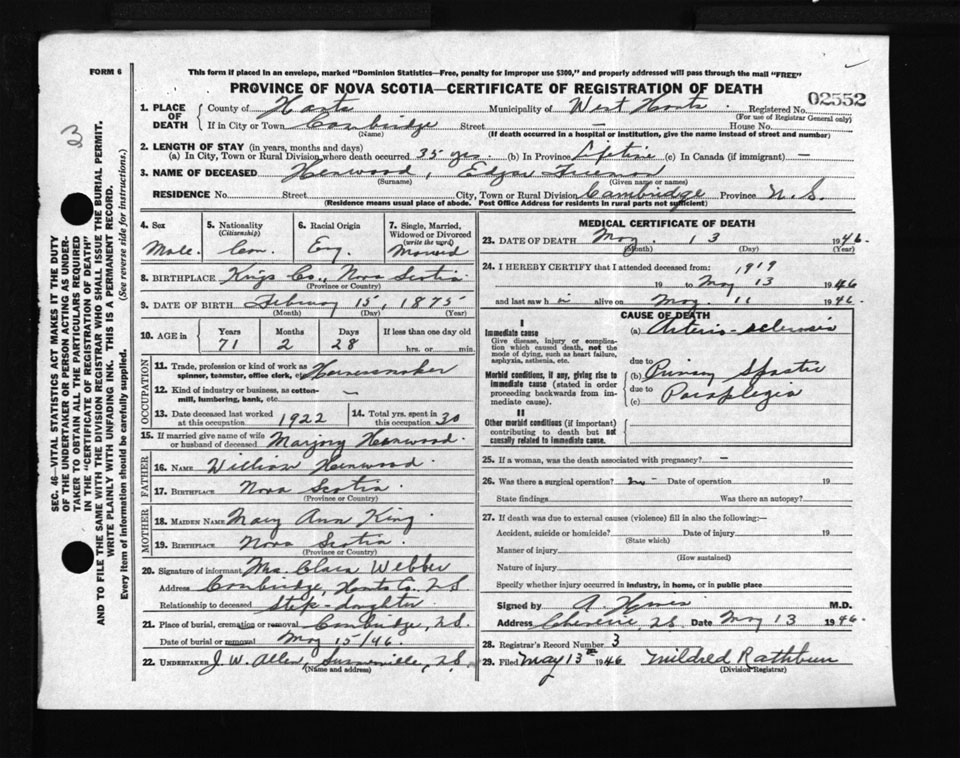 FORM 6
This form if placed in an envelope, marked "Dominion Statistics—Free, penalty for improper use $300," and properly addressed will pass through the mail "FREE"
PROVINCE OF NOVA SCOTIA—CERTIFICATE OF REGISTRATION OF DEATH
02552
3
1. PLACE OF DEATH County of Hants (Name) Municipality of West Hants Registered No. (For use of Registrar General only)
If in City or Town Cambridge Street — House No.
(If death occurred in a hospital or institution, give the name instead of street and number)
2. LENGTH OF STAY (in years, months and days)
(a) In City, Town or Rural Division where death occurred 35 yrs. (b) In Province Lifetime (c) In Canada (if immigrant) —
3. NAME OF DECEASED Henwood, Edgar Freeman
(Surname) (Given name or names)
RESIDENCE No. Street City, Town or Rural Division Cambridge Province N.S.
(Residence means usual place of abode. Post Office Address for residents in rural parts not sufficient)
4. Sex Male
5. Nationality (Citizenship) Can.
6. Racial Origin Eng.
7. Single, Married, Widowed or Divorced (write the word) Married
8. BIRTHPLACE Kings Co., Nova Scotia
(Province or Country)
9. DATE OF BIRTH February 15, 1875
(Month) (Day) (Year)
10. AGE in Years Months Days If less than one day old
71 2 28 hrs. or min.
OCCUPATION
11. Trade, profession or kind of work as spinner, teamster, office clerk, etc. Harnessmaker
12. Kind of industry or business, as cotton-mill, lumbering, bank, etc. —
13. Date deceased last worked at this occupation 1922 14. Total yrs. spent in this occupation 30
15. If married give name of wife or husband of deceased Marjory Henwood
FATHER
16. NAME William Henwood
17. BIRTHPLACE Nova Scotia
(Province or Country)
MOTHER
18. MAIDEN NAME Mary Ann King
19. BIRTHPLACE Nova Scotia
(Province or Country)
20. Signature of informant Mrs. Clara Webber
Address Cambridge, Hants Co., N.S.
Relationship to deceased Step-daughter
21. Place of burial, cremation or removal Cambridge, N.S.
Date of burial or removal May 15/46
22. UNDERTAKER J. W. Allen, Summerville, N.S.
(Name and address)
MEDICAL CERTIFICATE OF DEATH
23. DATE OF DEATH May 13 1946
(Month) (Day) (Year)
24. I HEREBY CERTIFY that I attended deceased from: 1919
19 to May 13 1946
and last saw h im alive on May 11 1946
CAUSE OF DEATH
I
Immediate cause
Give disease, injury or complication which caused death, not the mode of dying, such as heart failure, asphyxia, asthenia, etc.
(a) Arterio-sclerosis
due to
Morbid conditions, if any, giving rise to immediate cause (stated in order proceeding backwards from immediate cause).
(b) Primary Spastic
due to
(c) Paraplegia
II
Other morbid conditions (if important) contributing to death but not causally related to immediate cause.
25. If a woman, was the death associated with pregnancy? —
26. Was there a surgical operation? no - Date of operation 19
State findings Was there an autopsy?
27. If death was due to external causes (violence) fill in also the following:—
Accident, suicide or homicide? Date of injury 19
(State which)
Manner of injury
(How sustained)
Nature of injury
Specify whether injury occurred in industry, in home, or in public place
Signed by A. M.D.
Address N.S. Date May 13 1946
28. Registrar's Record Number 3
29. Filed May 13th 1946 Mildred Rathbun
(Division Registrar)
SEC. 46—VITAL STATISTICS ACT MAKES IT THE DUTY OF THE UNDERTAKER OR PERSON ACTING AS UNDERTAKER TO OBTAIN ALL THE PARTICULARS REQUIRED IN THE "CERTIFICATE OF REGISTRATION OF DEATH" AND TO FILE THE SAME WITH THE DIVISION REGISTRAR WHO SHALL ISSUE THE BURIAL PERMIT.
WRITE PLAINLY WITH UNFADING INK. THIS IS A PERMANENT RECORD.
Every item of information should be carefully supplied. (See reverse side for instructions.)